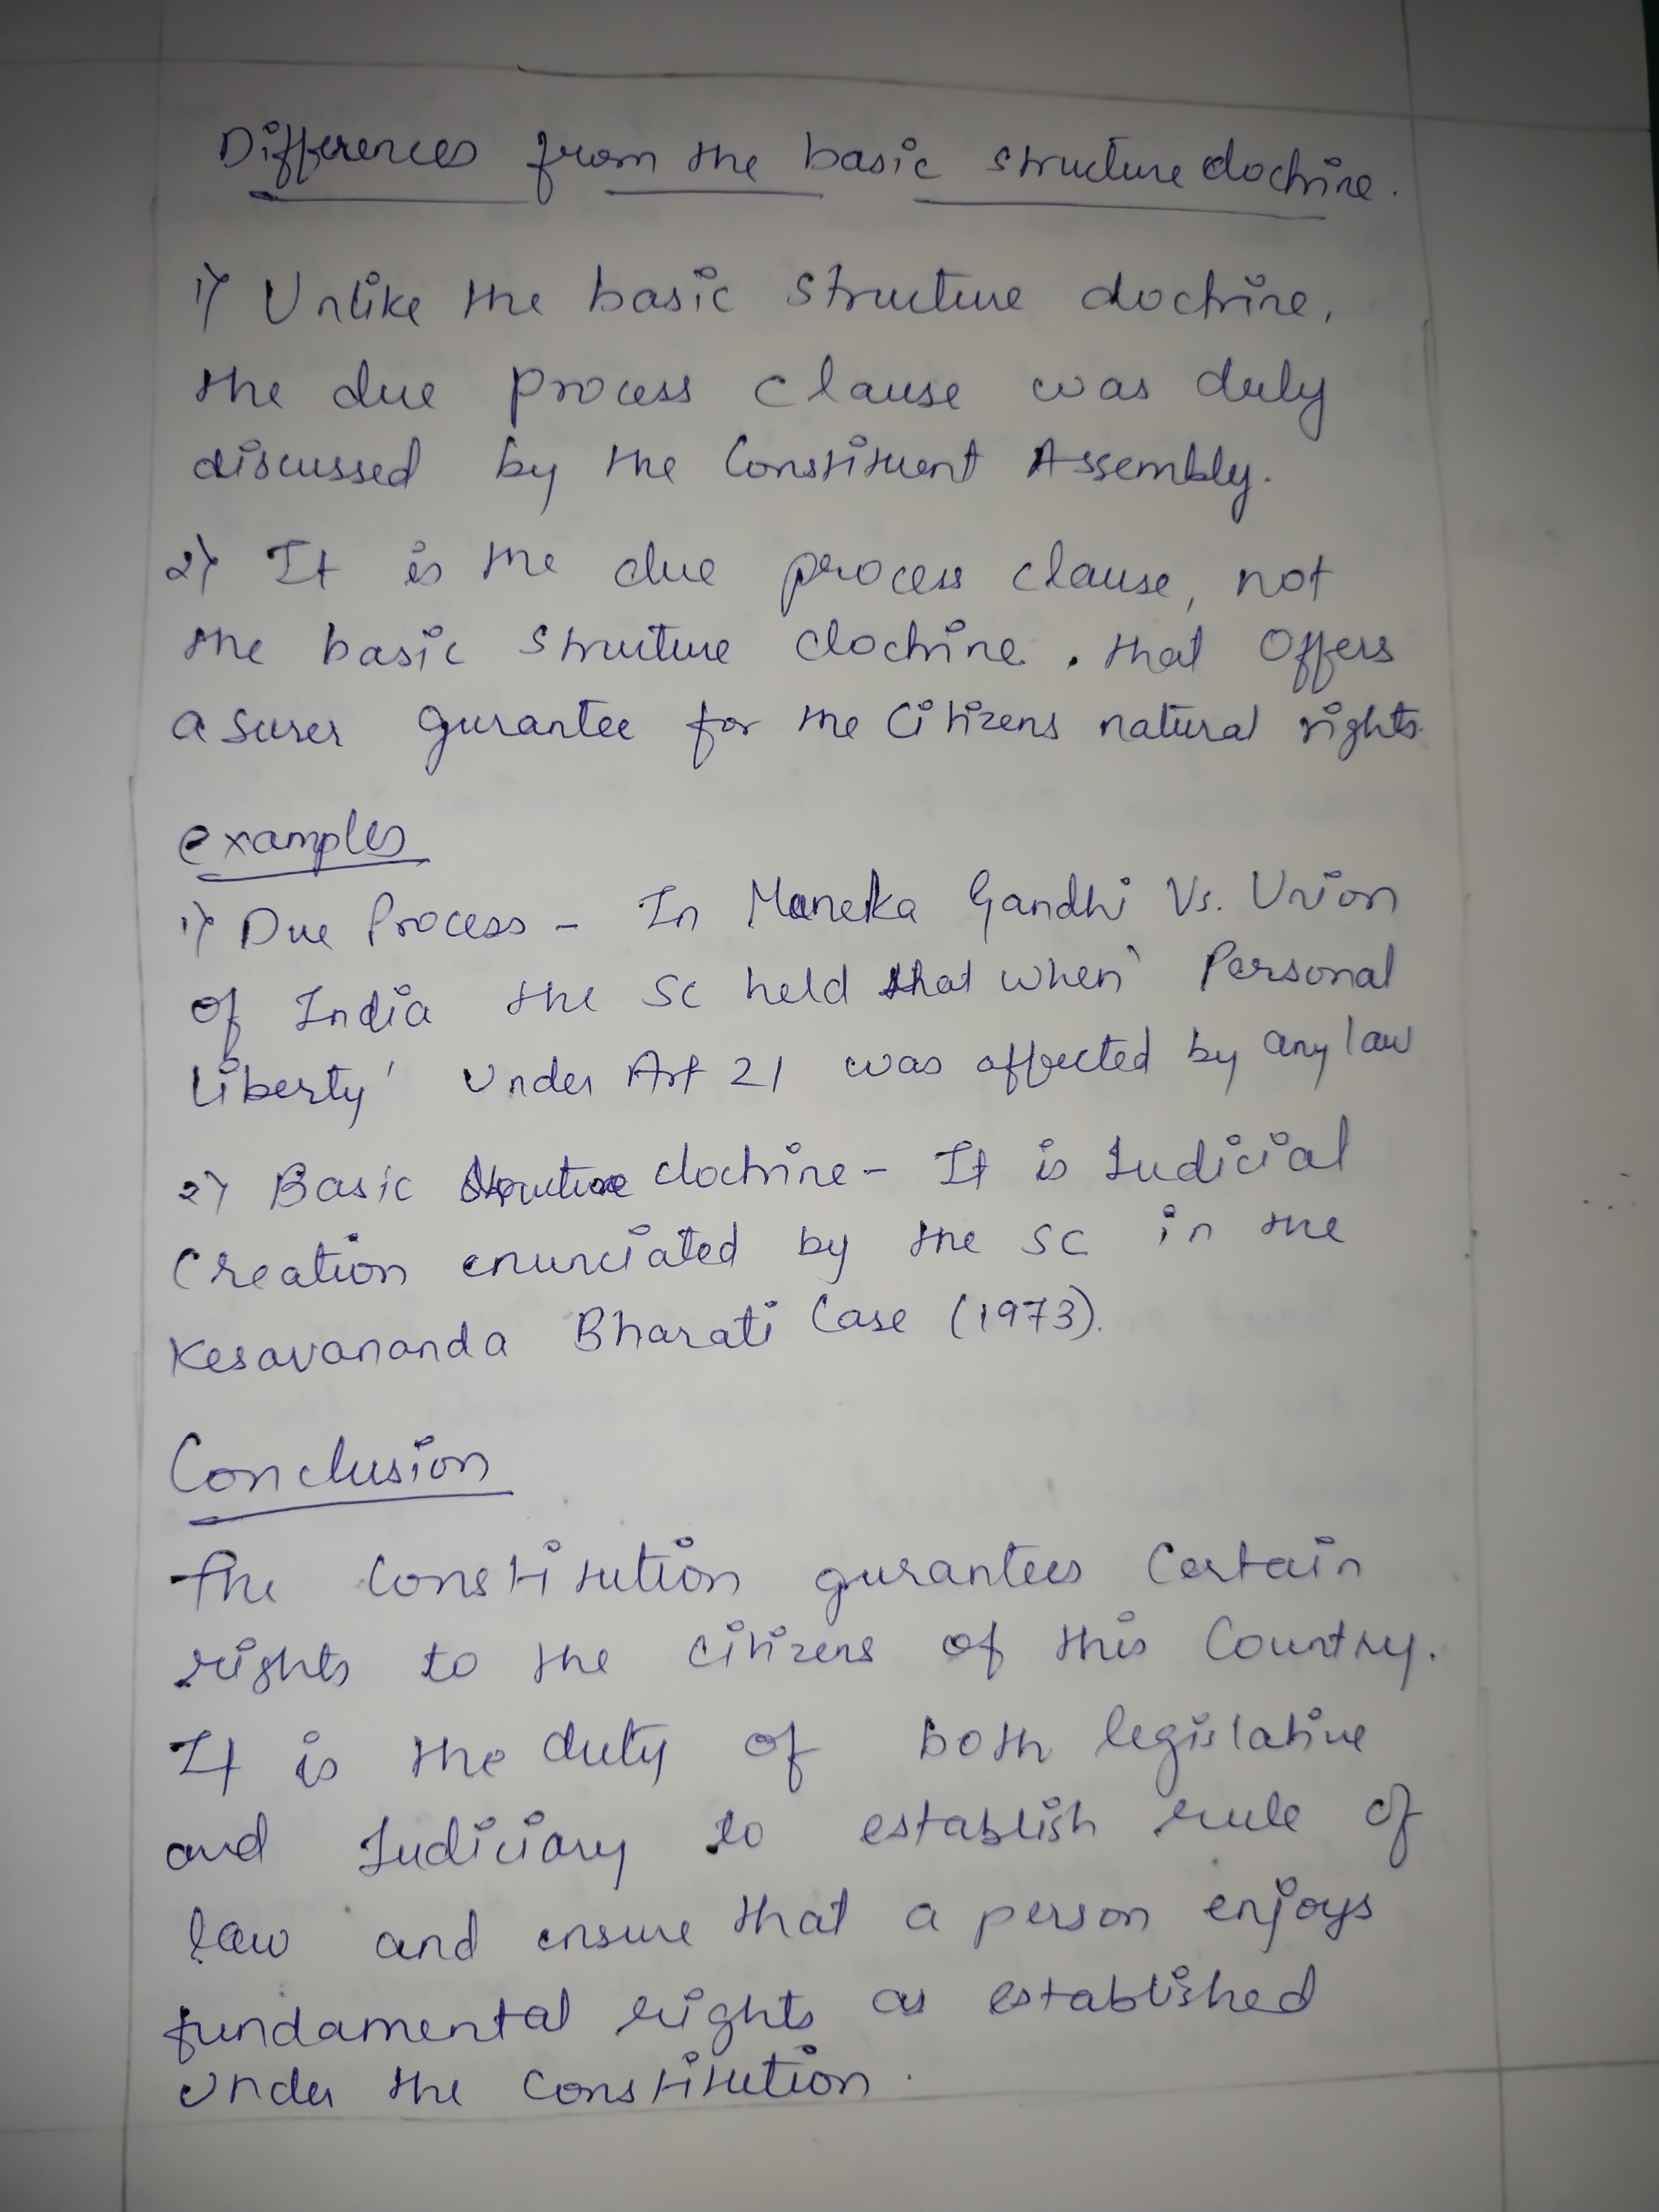 Differences from the basic structure doctrine.
1) Unlike the basic structure doctrine,
the due process clause was duly
discussed by the Constituent Assembly.
2) It is the due process clause, not
the basic structure doctrine. that offers
a surer gurantee for the Citizens natural rights.
examples
1) Due Process - In Maneka Gandhi Vs. Union
of India the SC held that when 'Personal
Liberty' under Art 21 was affected by any law
2) Basic Structure doctrine - It is Judicial
Creation enunciated by the SC in the
Kesavananda Bharati Case (1973).
Conclusion
The Constitution gurantees Certain
rights to the citizens of this Country.
It is the duty of both legislative
and Judiciary to establish rule of
law and ensure that a person enjoys
fundamental rights as established
under the Constitution.